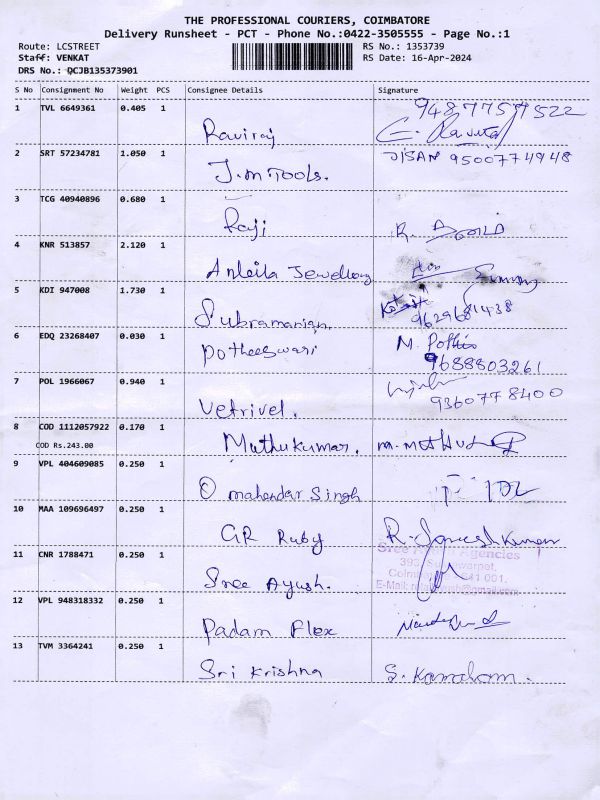 THE PROFESSIONAL COURIERS, COIMBATORE
Delivery Runsheet - PCT - Phone No.:0422-3505555 - Page No.:1
Route: LCSTREET RS No.: 1353739
Staff: VENKAT RS Date: 16-Apr-2024
DRS No.: QCJB135373901
S No Consignment No Weight PCS Consignee Details Signature
1 TVL 6649361 0.405 1 Raviraj 9487757522
2 SRT 57234781 1.050 1 J.m Tools. JISAN 9500774948
3 TCG 40940896 0.680 1 Raji R.
4 KNR 513857 2.120 1 Anleila Jewellery
5 KDI 947008 1.730 1 Subramanian. 9629681438
6 EDQ 23268407 0.030 1 Potheeswari M. Pothis
9688803261
7 POL 1966067 0.940 1 Vetrivel. 9360778400
8 COD 1112057922 0.170 1 Muthukumar.
COD Rs.243.00
9 VPL 404609085 0.250 1 mahendar Singh
10 MAA 109696497 0.250 1 GR Ruby
11 CNR 1788471 0.250 1 Sree Ayush. Sree Agencies
641 001.
12 VPL 948318332 0.250 1 Padam Flex
13 TVM 3364241 0.250 1 Sri Krishna S. Kamalam.